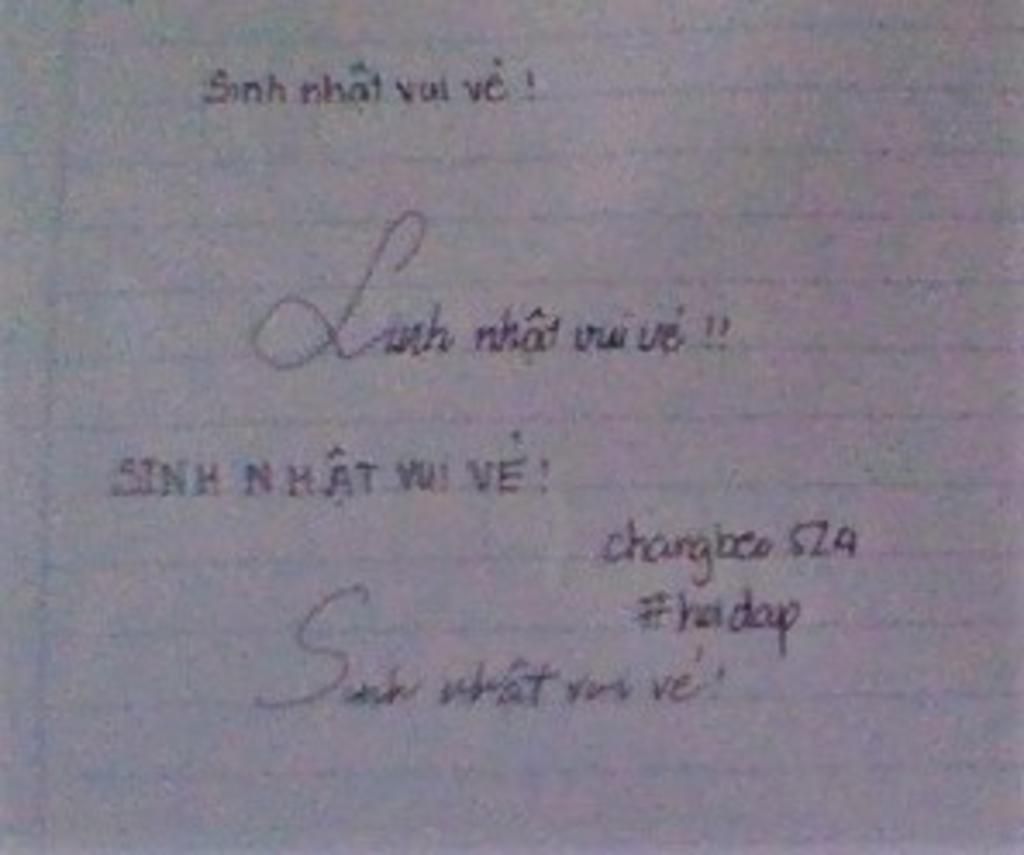 Sinh nhật vui vẻ !
Sinh nhật vui vẻ !!
SINH NHẬT VUI VẺ !
changbeo 52A
#hoidap
Sinh nhật vui vẻ !